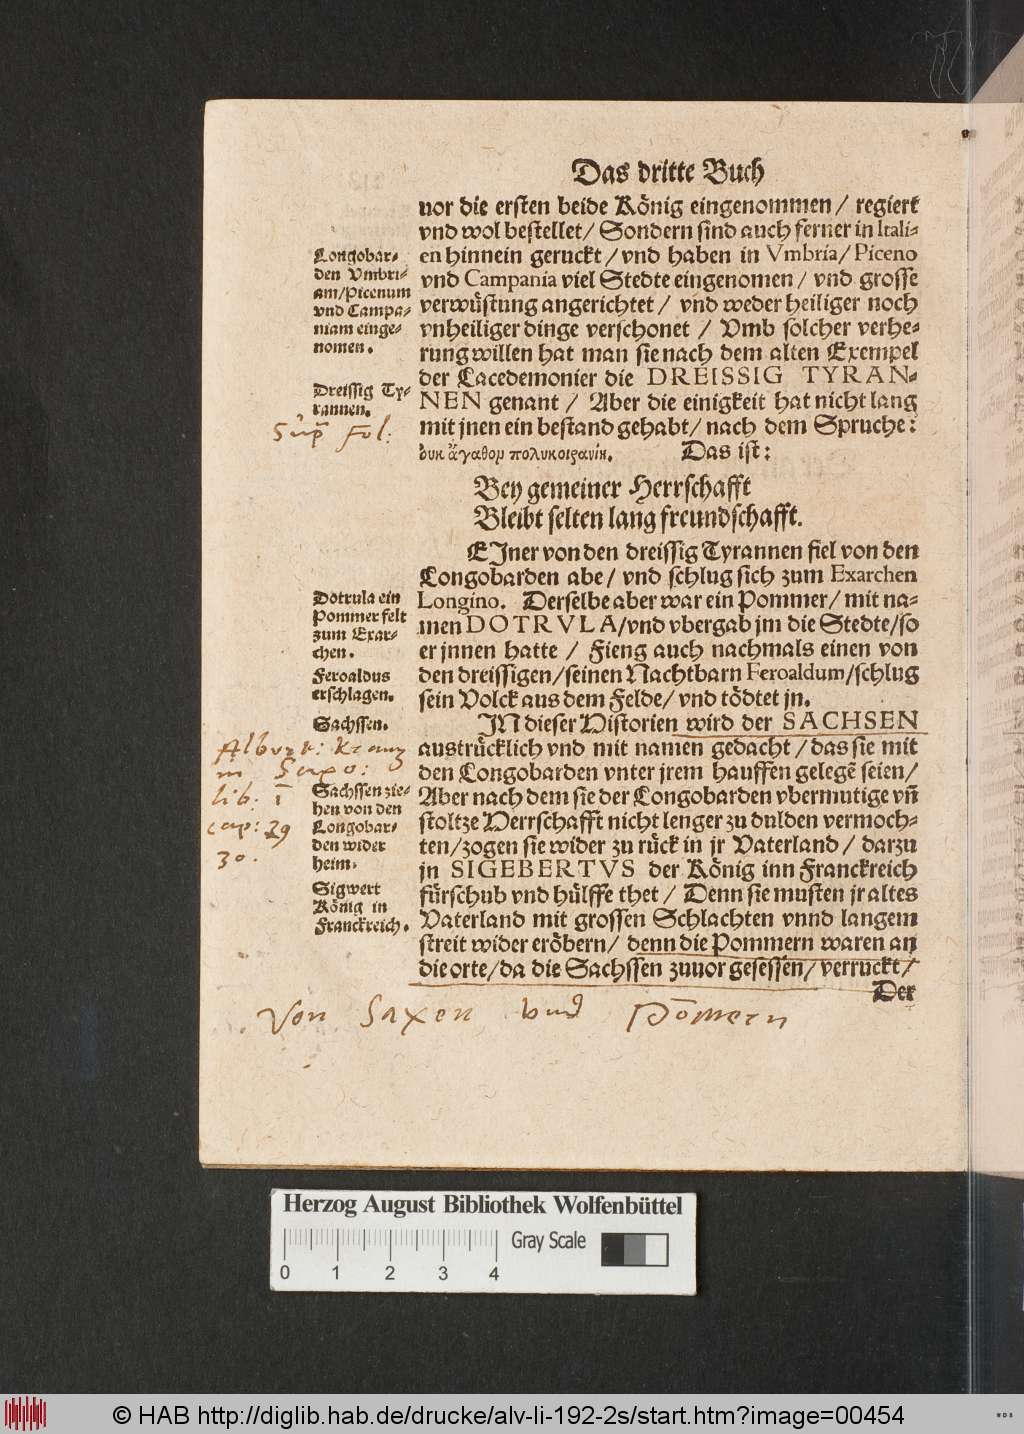 Das dritte Buch
uor die ersten beide König eingenommen / regiert
vnd wol bestellet / Sondern sind auch ferner in Itali-
en hinnein geruckt / vnd haben in Vmbria / Piceno
vnd Campania viel Stedte eingenomen / vnd grosse
verwüstung angerichtet / vnd weder heiliger noch
vnheiliger dinge verschonet / Vmb solcher verhe-
rung willen hat man sie nach dem alten Exempel
der Lacedemonier die DREISSIG TYRAN-
NEN genant / Aber die einigkeit hat nicht lang
mit jnen ein bestand gehabt / nach dem Spruche:
ὀυκ ἄγαθον πολυκοιρανίη. Das ist:
Bey gemeiner Herrschafft
Bleibt selten lang freundschafft.
EJner von den dreissig Tyrannen fiel von den
Longobarden abe / vnd schlug sich zum Exarchen
Longino. Derselbe aber war ein Pommer / mit na-
men DOTRVLA / vnd vbergab jm die Stedte / so
er jnnen hatte / Fieng auch nachmals einen von
den dreissigen / seinen Nachtbarn Feroaldum / schlug
sein Volck aus dem Felde / vnd tödtet jn.
JN dieser Historien wird der SACHSEN
austrücklich vnd mit namen gedacht / das sie mit
den Longobarden vnter jrem hauffen gelegē seien /
Aber nach dem sie der Longobarden vbermutige vñ
stoltze Herrschafft nicht lenger zu dulden vermoch-
ten / zogen sie wider zu rück in jr Vaterland / darzu
jn SIGEBERTVS der König inn Franckreich
fürschub vnd hülffe thet / Denn sie musten jr altes
Vaterland mit grossen Schlachten vnnd langem
streit wider eröbern / denn die Pommern waren an
die orte / da die Sachssen zuuor gesessen / verruckt /
Der
Longobar-
den Vmbri-
am / Picenum
vnd Campa-
niam einge-
nomen.
Dreissig Ty-
rannen.
Sup̄ Fol:
Dotrula ein
Pommer felt
zum Exar-
chen.
Feroaldus
erschlagen.
Sachssen.
Albert: Kranz
in Saxo:
lib: 1
cap: 29
30.
Sachssen zie-
hen von den
Longobar-
den wider
heim.
Sigwert
König in
Franckreich.
Von Saxen vnd Pōmern
Herzog August Bibliothek Wolfenbüttel
Gray Scale
0 1 2 3 4
© HAB http://diglib.hab.de/drucke/alv-li-192-2s/start.htm?image=00454